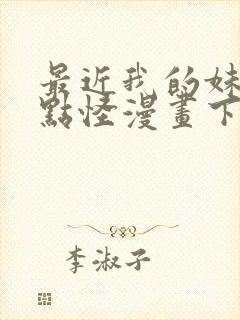 最近我的妹
點怪漫畫下
李淑子